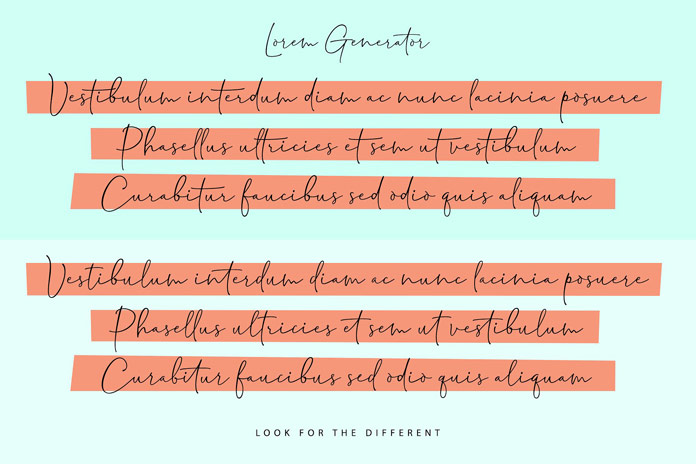 Lorem Generator
Vestibulum interdum diam ac nunc lacinia posuere
Phasellus ultricies et sem ut vestibulum
Curabitur faucibus sed odio quis aliquam
Vestibulum interdum diam ac nunc lacinia posuere
Phasellus ultricies et sem ut vestibulum
Curabitur faucibus sed odio quis aliquam
LOOK FOR THE DIFFERENT